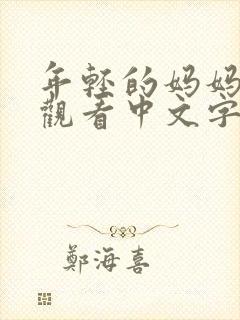 年轻的妈妈
觀看中文字
鄭海喜